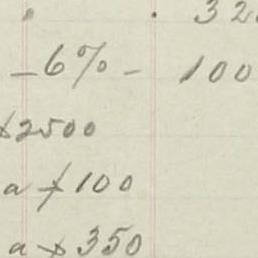 32
- 6% - 100
$2500
a $100
a $350